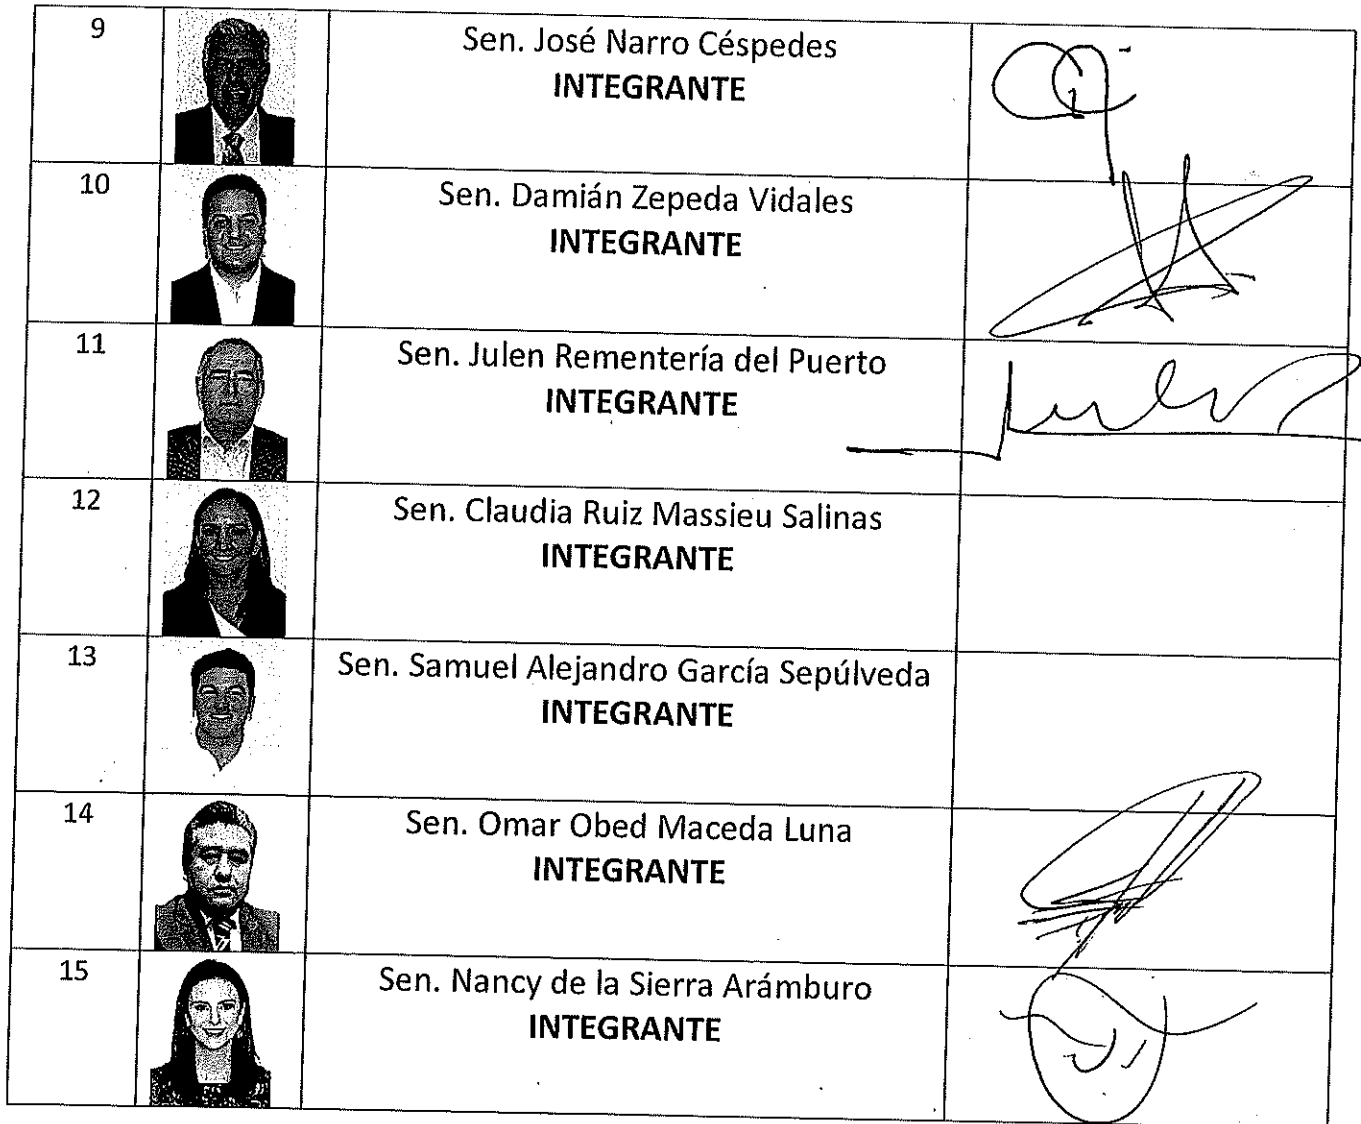 9
Sen. José Narro Céspedes
INTEGRANTE
10
Sen. Damián Zepeda Vidales
INTEGRANTE
11
Sen. Julen Rementería del Puerto
INTEGRANTE
12
Sen. Claudia Ruiz Massieu Salinas
INTEGRANTE
13
Sen. Samuel Alejandro García Sepúlveda
INTEGRANTE
14
Sen. Omar Obed Maceda Luna
INTEGRANTE
15
Sen. Nancy de la Sierra Arámburo
INTEGRANTE